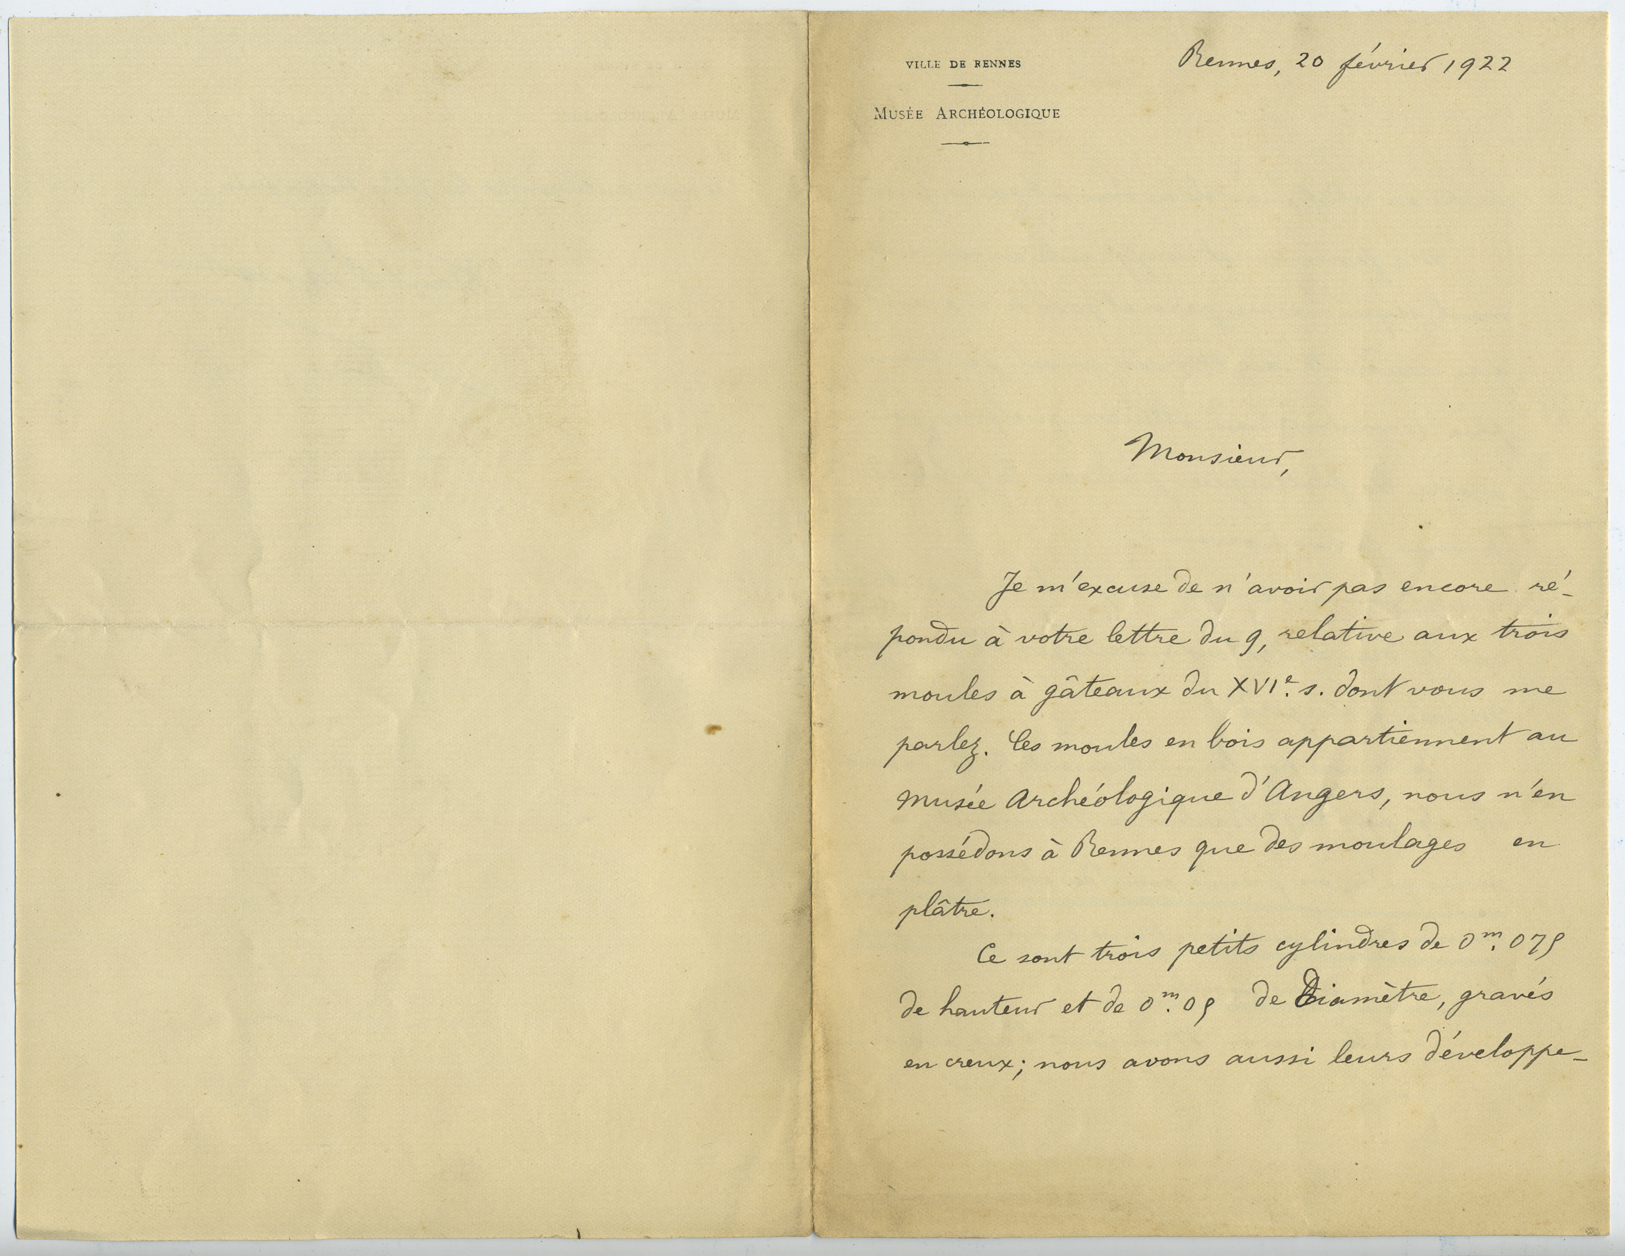 VILLE DE RENNES
MUSÉE ARCHÉOLOGIQUE
Rennes, 20 février 1922
Monsieur,
Je m'excuse de n'avoir pas encore ré-
pondu à votre lettre du 9, relative aux trois
moules à gâteaux du XVIe. s. dont vous me
parlez. Ces moules en bois appartiennent au
Musée Archéologique d'Angers, nous n'en
possédons à Rennes que des moulages en
plâtre.
Ce sont trois petits cylindres de 0m.075
de hauteur et de 0m.05 de Diamètre, gravés
en creux; nous avons aussi leurs développe-